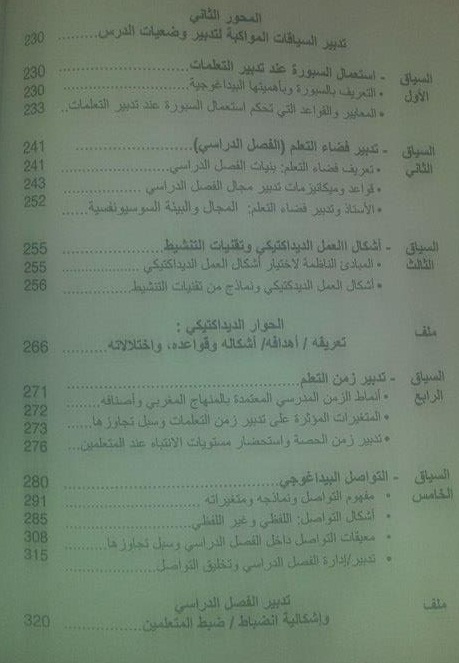 المحور الثاني
تدبير السياقات المواكبة لتدبير وضعيات الدرس 230
السياق الأول
- استعمال السبورة عند تدبير التعلمات.................... 230
• التعريف بالسبورة وبأهميتها البيداغوجية.................... 230
• المعايير والقواعد التي تحكم استعمال السبورة عند تدبير التعلمات.. 233
السياق الثاني
- تدبير فضاء التعلم (الفصل الدراسي).................... 241
• تعريف فضاء التعلم: بنيات الفصل الدراسي.................... 241
• قواعد وميكانيزمات تدبير مجال الفصل الدراسي .................... 243
• الأستاذ وتدبير فضاء التعلم: المجال والبيئة السوسيونفسية...... 252
السياق الثالث
- أشكال االعمل الديداكتيكي وتقنيات التنشيط.................... 255
• المبادئ الناظمة لاختيار أشكال العمل الديداكتيكي .................... 255
• أشكال العمل الديدكتيكي ونماذج من تقنيات التنشيط............ 256
ملف
الحوار الديداكتيكي :
تعريفه / أهدافه/ أشكاله وقواعده، واختلالاته.......... 266
السياق الرابع
- تدبير زمن التعلم.................... 271
• أنماط الزمن المدرسي المعتمدة بالمنهاج المغربي وأصنافه...... 272
• المتغيرات المؤثرة على تدبير زمن التعلمات وسبل تجاوزها...... 273
• تدبير زمن الحصة واستحضار مستويات الانتباه عند المتعلمين... 276
السياق الخامس
- التواصل البيداغوجي.................... 280
• مفهوم التواصل ونماذجه ومتغيراته .................... 291
• أشكال التواصل: اللفظي وغير اللفظي.................... 285
• معيقات التواصل داخل الفصل الدراسي وسبل تجاوزها........ 308
• تدبير/إدارة الفصل الدراسي وتخليق التواصل............ 315
ملف
تدبير الفصل الدراسي
وإشكالية انضباط / ضبط المتعلمين............ 320